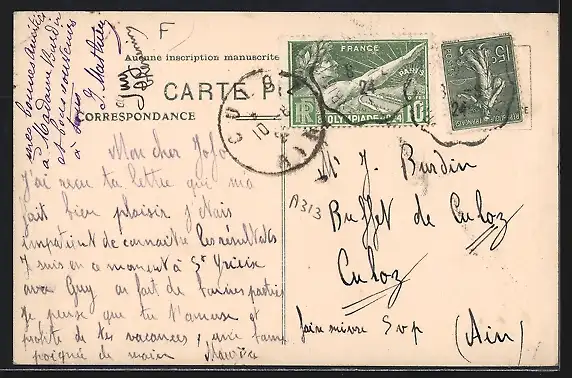 mes bonnes amitiés
à Madame Burdin
et bons souvenirs
à
J Mathieu
F
Aucune inscription manuscrite
CARTE P
CORRESPONDANCE
Mon cher Jojo
J'ai reçu ta lettre qui m'a
fait bien plaisir j'étais
impatient de connaître les résultats
Je suis en ce moment à St Yrieix
avec Guy on fait de bonnes parties
je pense que tu t'amuse et
profite de tes vacances, une bonne
poignée de main Maurice
FRANCE
PARIS
RF
8e OLYMPIADE
10c
15c
REPUBLIQUE FRANÇAISE
CULOZ
AIN
10
24
24
A313
Mr J. Burdin
Buffet de Culoz
Culoz
faire suivre S v p
(Ain)